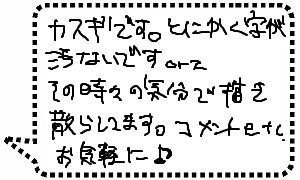 カスギです。とにかく字が
汚ないです。orz
その時々の気分で描き
散らしてます。コメントetc.
お気軽に♪